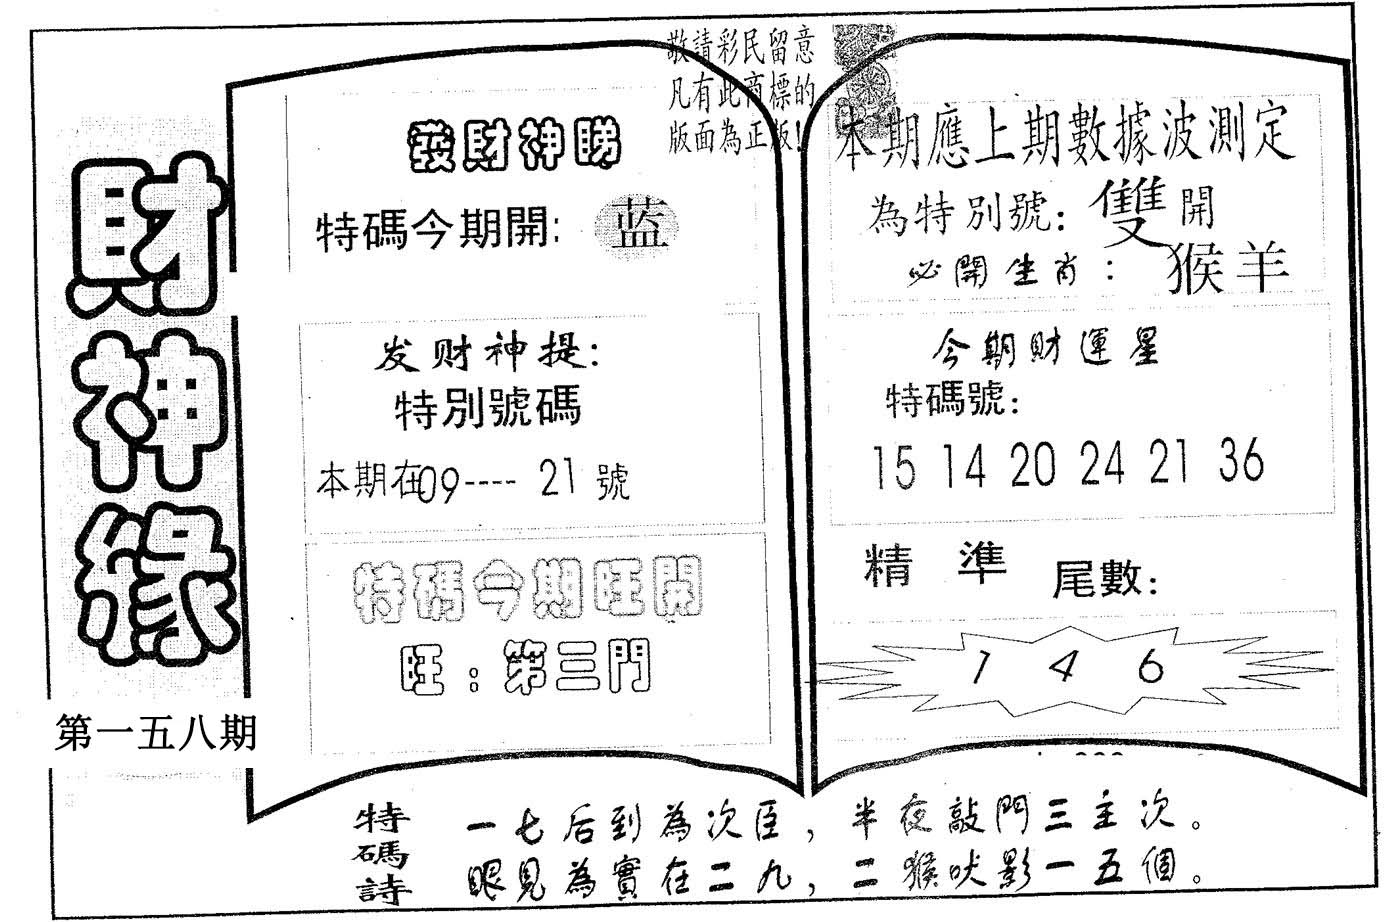 敬請彩民留意
凡有此商標的
版面為正版!
財神緣
第一五八期
發財神睇
特碼今期開: 蓝
发财神提:
特別號碼
本期在09---- 21 號
特碼今期旺開
旺:第三門
本期應上期數據波測定
為特別號: 雙 開
必開生肖: 猴羊
今期財運星
特碼號:
15 14 20 24 21 36
精 準 尾數:
1 4 6
特碼詩
一七后到為次臣,半夜敲門三主次。
眼見為實在二九,二猴吠影一五個。